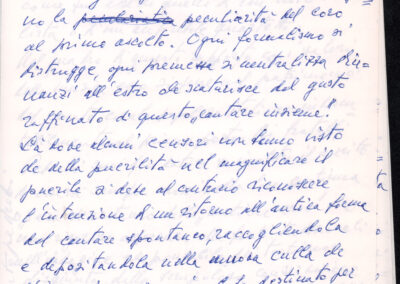 no la peculiarità peculiarità del coro
al primo ascolto. Ogni formalismo si
distrugge, ogni premessa si neutralizza din-
nanzi all'estro che scaturisce dal gusto
raffinato di questo "cantare insieme".
Là dove alcuni censori vi hanno visto
della puerilità nel magnificare il
puerile si deve al contrario riconoscere
l'intenzione di un ritorno all'antica forma
del cantare spontaneo, raccogliendola
e depositandola nella nuova culla
destinato per